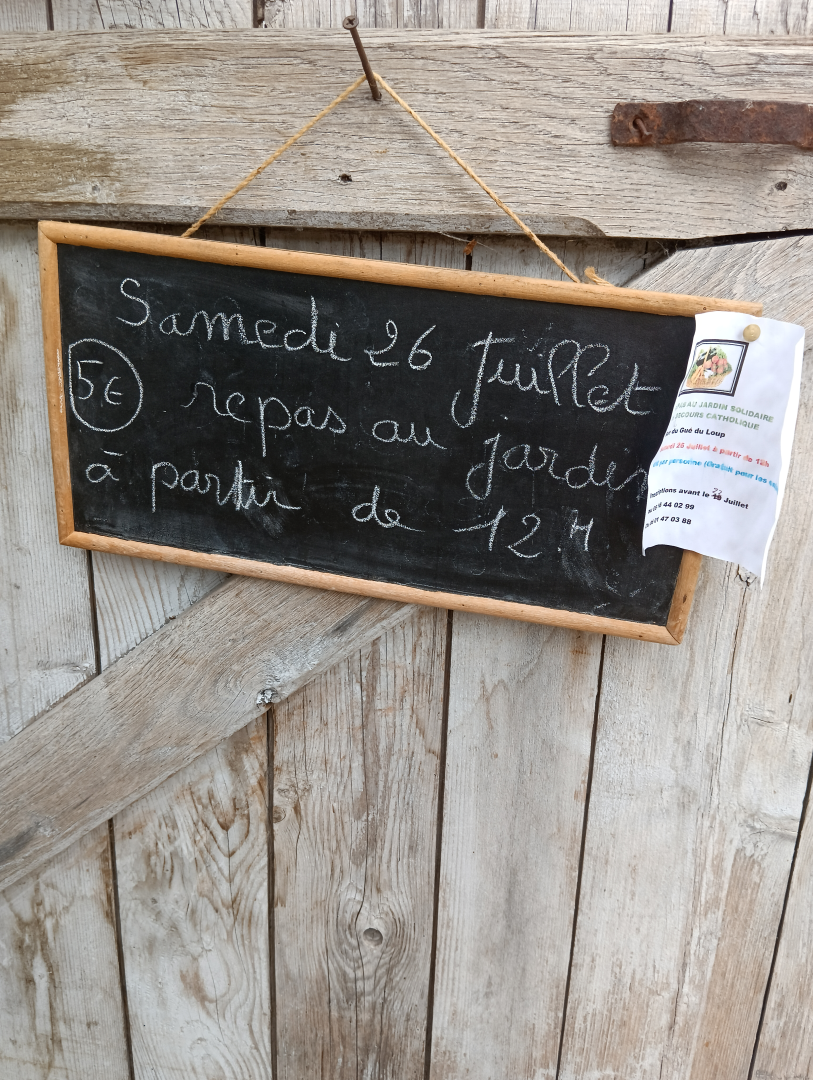 Samedi 26 Juillet
5€ repas au jardin
à partir de 12 H
AU JARDIN SOLIDAIRE
SECOURS CATHOLIQUE
du Gué du Loup
Samedi 26 Juillet à partir de 12h
par personne (Gratuit pour les
Inscriptions avant le 18 Juillet
44 02 99
01 47 03 88